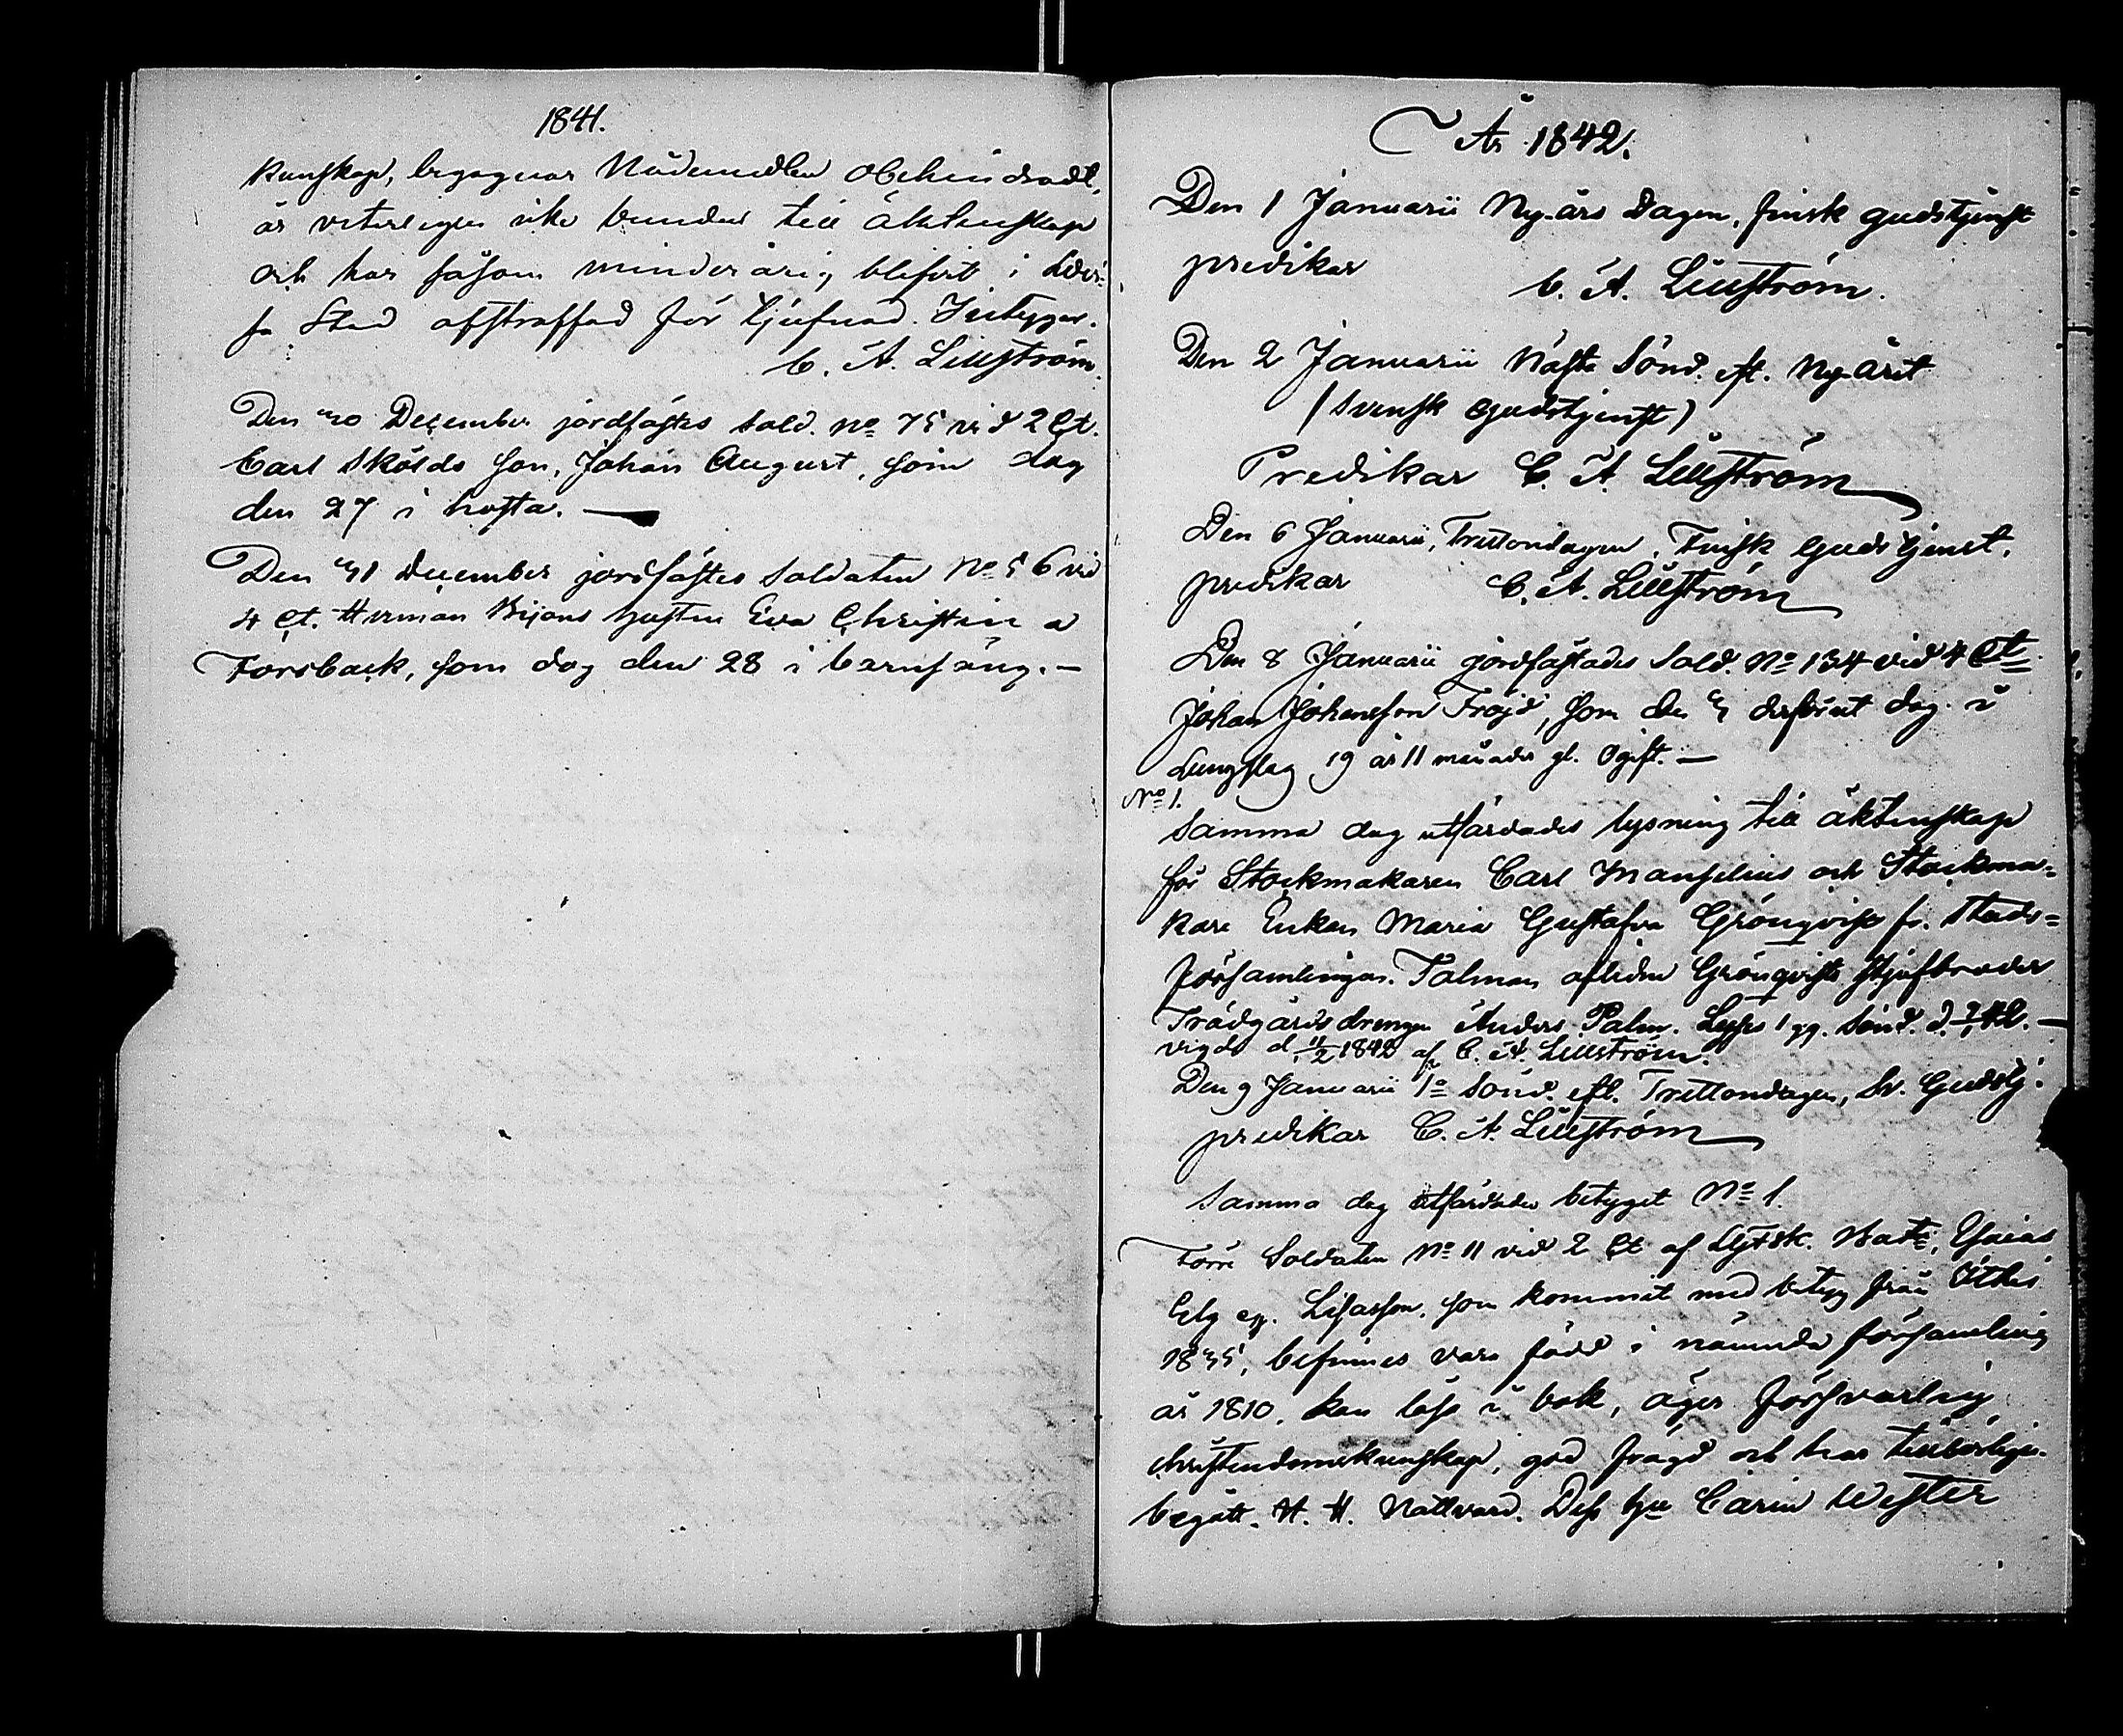 1841.
kunskap, begagnar Nådemedlen obehindradt,
är veterligen icke bunden till äktenskap
och har såsom minderårig blifvit i Lovi-
sa Stad afstraffad för tjufnad. Intygar.
C. A. Lillström.
Den 30 December jordfästes Sold. No 75 vid 2 Ct.
Carl Skölds son, Johan August, som dog
den 27 i hosta. —
Den 31 December jordfästes Soldaten No 56 vid
4 Ct. Herman hustru Eva Christina
Forsback, som dog den 28 i barnsäng. —
År 1842.
Den 1 Januarii Ny-års Dagen, finsk gudstjenst
predikar
C. A. Lillström.
Den 2 Januarii Nästa Sönd. eft. Ny-året
(Svensk Gudstjenst)
Predikar C. A. Lillström
Den 6 Januarii, Trettondagen. Finsk Gudstjenst.
predikar C. A. Lillström
Den 8 Januarii jordfästades Sold. No 134 vid 4 Ct
Johan Johansson Fröjd, som den 3 derförut dog i
Lungslag 19 år 11 månader gl. Ogift. —
No 1.
Samma dag utfärdades lysning till äktenskap
för Stockmakaren Carl Manselius och Stockma-
kare Enkan Maria Gustafva Grönqvist fr. Stads-
församlingen. Talman aflidne Grönqvists Stjufbroder
Trädgårdsdrengen Anders Palm. Lyses 1 gg. Sönd. d.
vigde d. 11/2 1842 af C. A. Lillström.
Den 9 Januarii 1a Sönd. eft. Trettondagen, Sv. Gudstj.
predikar C. A. Lillström
Samma dag utfärdades betyget No 1.
Förre Soldaten No 11 vid 2 Ct af Bat., Esaias
Elg eg. Lisasson, som kommit med betyg från
1835, befinnes vara född i nämnde församling
år 1810, kan läsa i bok, äger försvarlig
christendomskunskap, god frägd och har tillbörligen
begått H. H. Nattvard. Dess hu Carin Wester